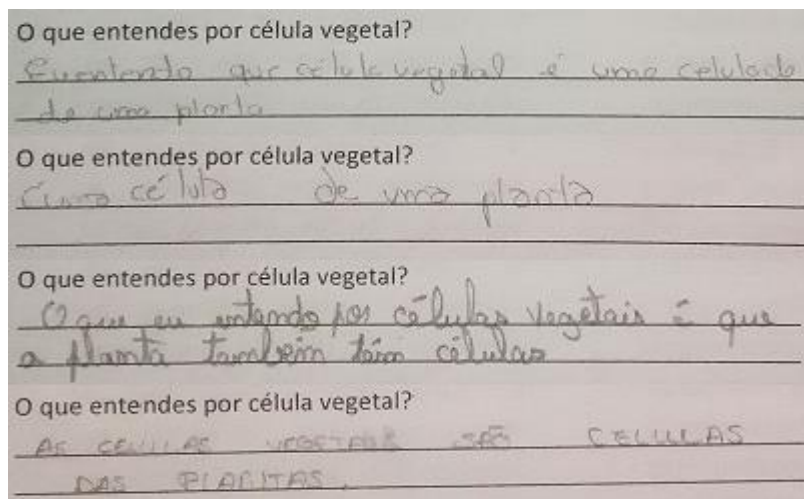 O que entendes por célula vegetal?
Eu entendo que celula vegetal é uma celula de
de uma planta
O que entendes por célula vegetal?
É uma célula de uma planta
O que entendes por célula vegetal?
O que eu entendo por células vegetais é que
a planta também têm células
O que entendes por célula vegetal?
AS CELULAS VEGETAIS SÃO CELULAS
DAS PLANTAS.